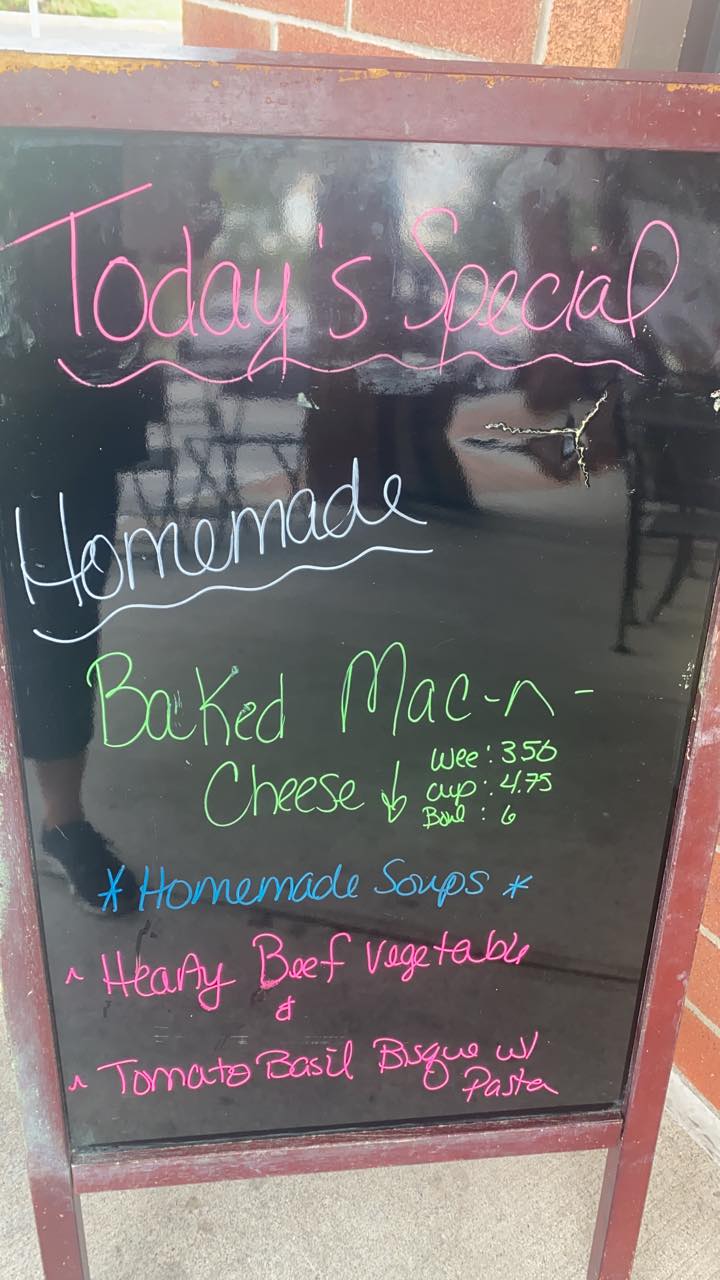 Today's Special
Homemade
Baked Mac-n-
Cheese ↓
Wee : 3.50
Cup : 4.75
Bowl : 6
* Homemade Soups *
^ Hearty Beef Vegetable
&
^ Tomato Basil Bisque w/
Pasta